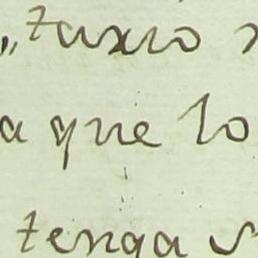 „tario
a que lo
tenga